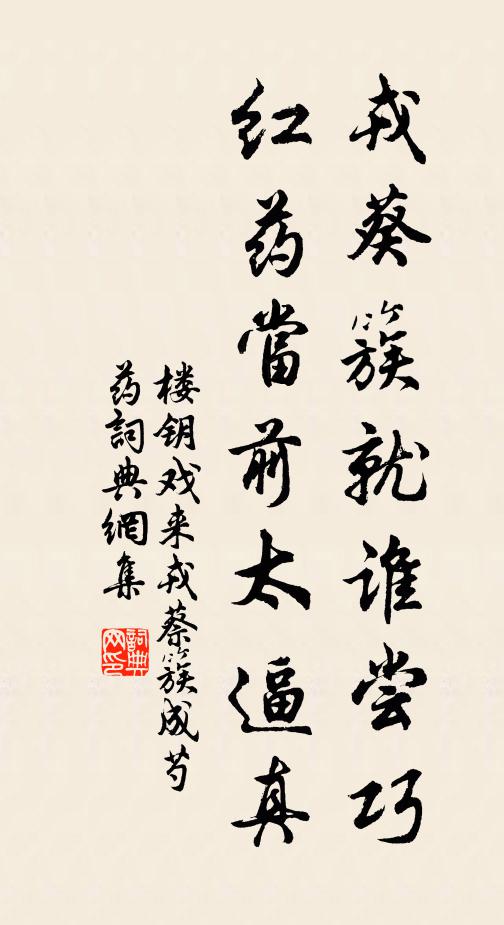 戎葵簇就谁尝巧
红药當前太逼真
楼钥戏来戎蔡簇成芍
药詞典網集
詞典网印